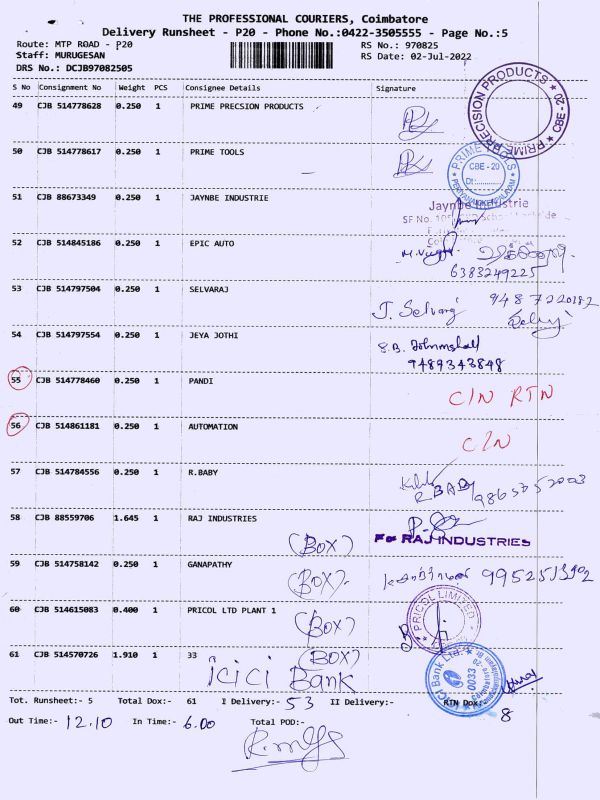 THE PROFESSIONAL COURIERS, Coimbatore
Delivery Runsheet - P20 - Phone No.:0422-3505555 - Page No.:5
Route: MTP ROAD - P20 RS No.: 970825
Staff: MURUGESAN RS Date: 02-Jul-2022
DRS No.: DCJB97082505
S No Consignment No Weight PCS Consignee Details Signature
49 CJB 514778628 0.250 1 PRIME PRECSION PRODUCTS
PRIME PRECISION PRODUCTS CBE - 20
50 CJB 514778617 0.250 1 PRIME TOOLS
PRIME TOOLS CBE - 20
Dt:
51 CJB 88673349 0.250 1 JAYNBE INDUSTRIE
Jaynbe Industrie
SF No.
52 CJB 514845186 0.250 1 EPIC AUTO
6383249225
53 CJB 514797504 0.250 1 SELVARAJ
J. Selvaraj
54 CJB 514797554 0.250 1 JEYA JOTHI
9489343848
55 CJB 514778460 0.250 1 PANDI
C/N RTN
56 CJB 514861181 0.250 1 AUTOMATION
C/N
57 CJB 514784556 0.250 1 R.BABY
R BABY
58 CJB 88559706 1.645 1 RAJ INDUSTRIES
(BOX) For RAJ INDUSTRIES
59 CJB 514758142 0.250 1 GANAPATHY
(BOX)
60 CJB 514615083 0.400 1 PRICOL LTD PLANT 1
(BOX) PRICOL LIMITED
61 CJB 514570726 1.910 1 33 (BOX)
icici Bank
ICICI Bank Ltd. 0033
Tot. Runsheet:- 5 Total Dox:- 61 I Delivery:- 53 II Delivery:- RTN Dox:- 8
Out Time:- 12.10 In Time:- 6.00 Total POD:-